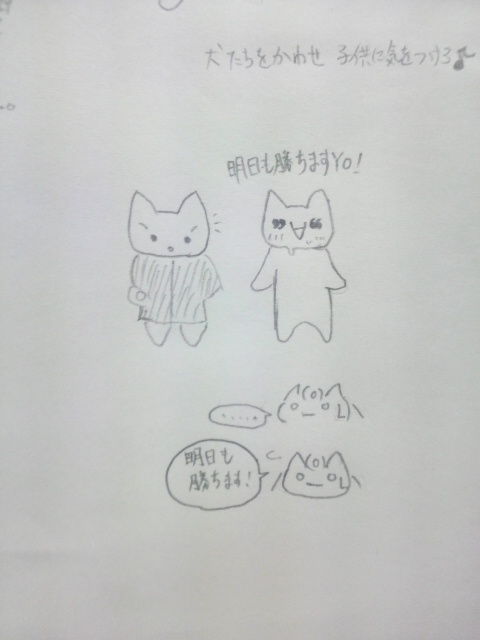 犬たちをかわせ 子供に気をつけろ♪
明日も勝ちますYO!
.....
明日も
勝ちます!